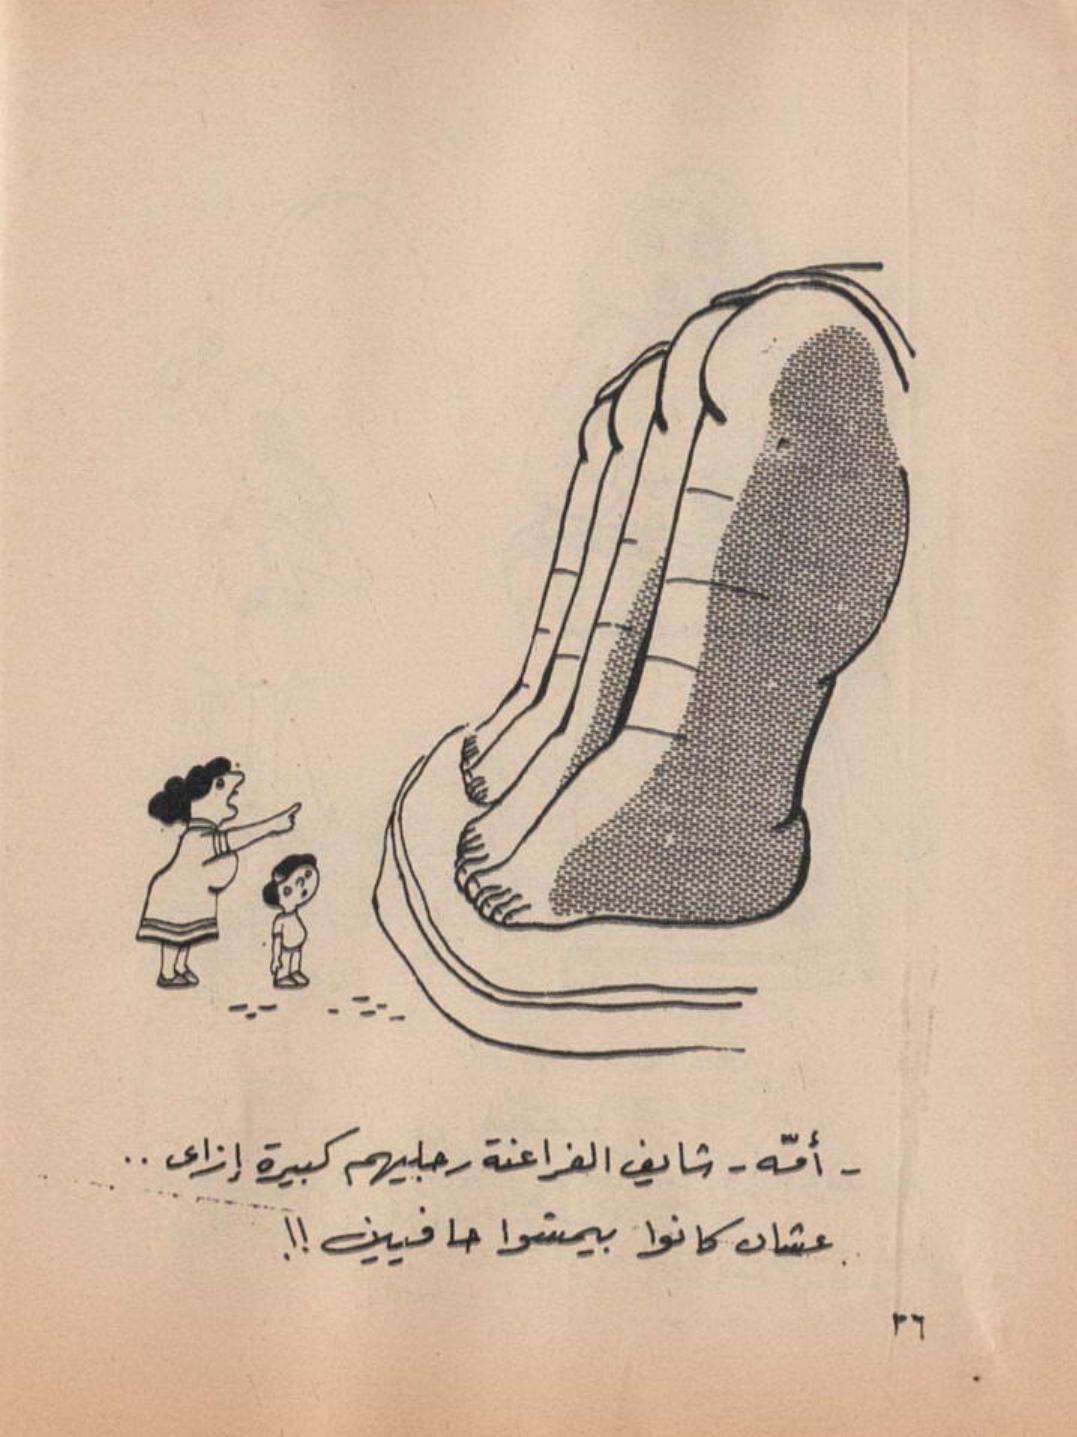 - أمّه - شايف الفراعنة رجليهم كبيرة إزاى ..
عشان كانوا بيمشوا حافيين !!
٣٦